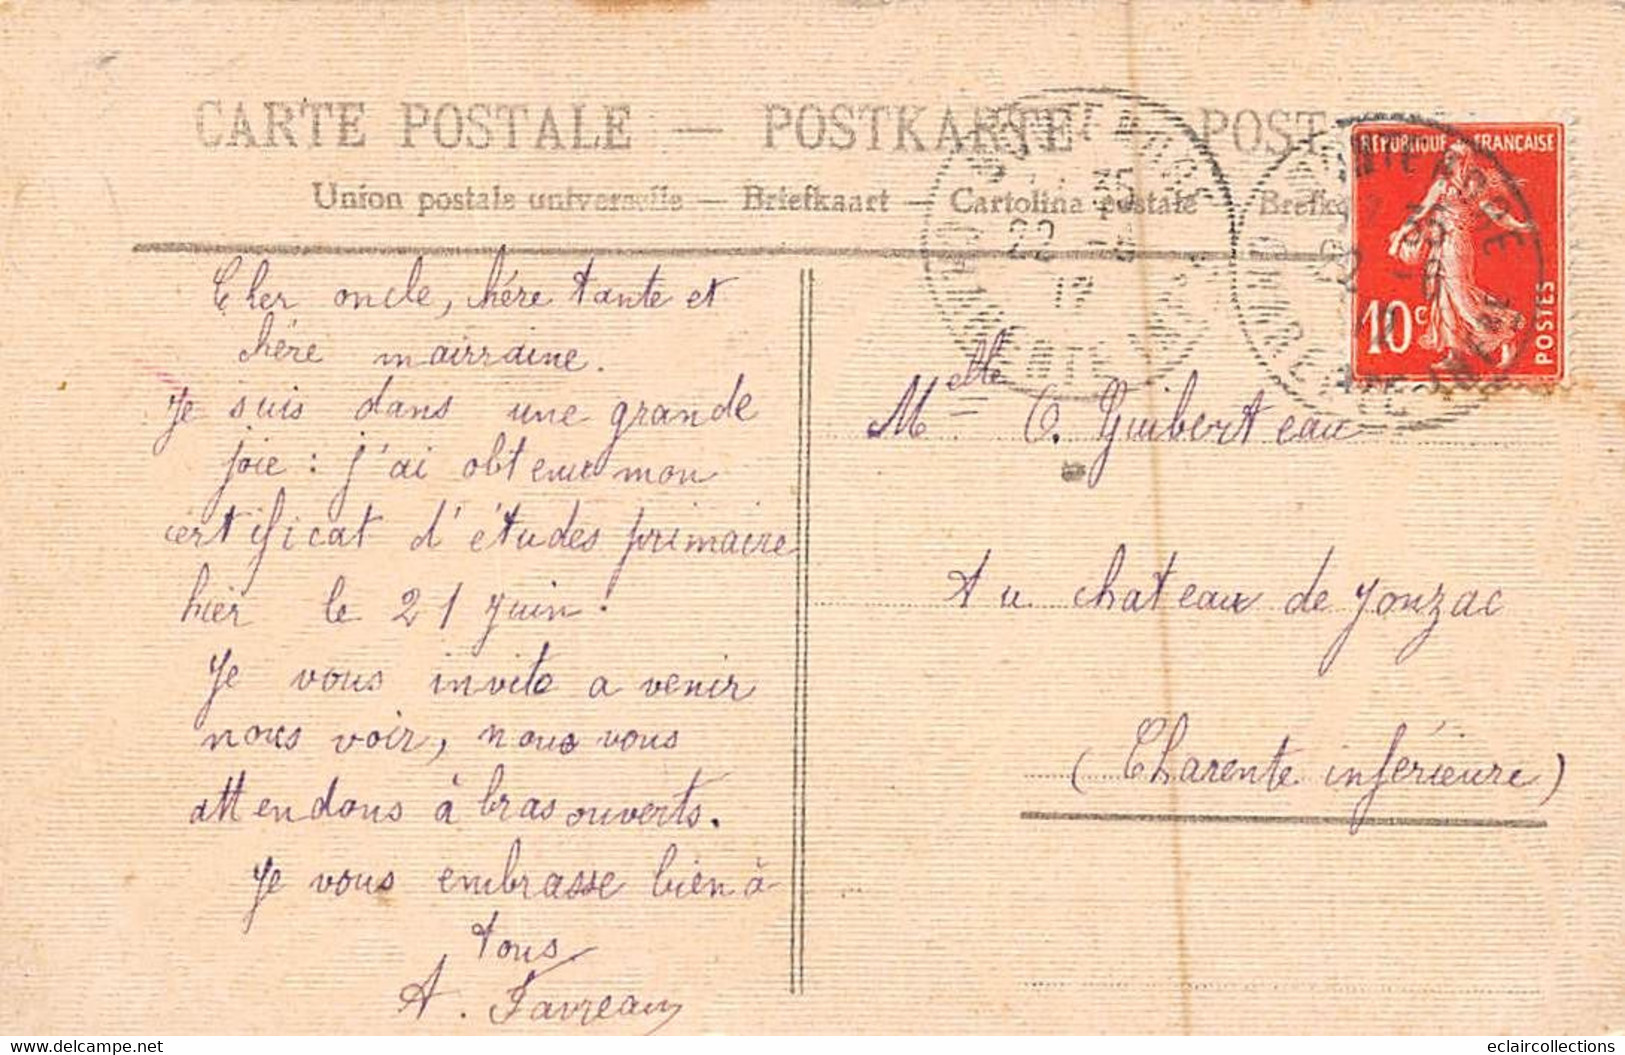 CARTE POSTALE — POSTKARTE — POST
Union postale universelle — Briefkaart — Cartolina postale — Brefk
RÉPUBLIQUE FRANÇAISE
10c
POSTES
Cher oncle, chére tante et
chére mairraine.
Je suis dans une grande
joie : j'ai obtenu mon
certificat d'études primaire
hier le 21 juin.
Je vous invite a venir
nous voir, nous vous
attendons à bras ouverts.
Je vous embrasse bien à
tous
A. Favreau
Melle O. Guiberteau
Au chateau de Jonzac
(Charente inférieure)
delcampe.net
eclaircollections